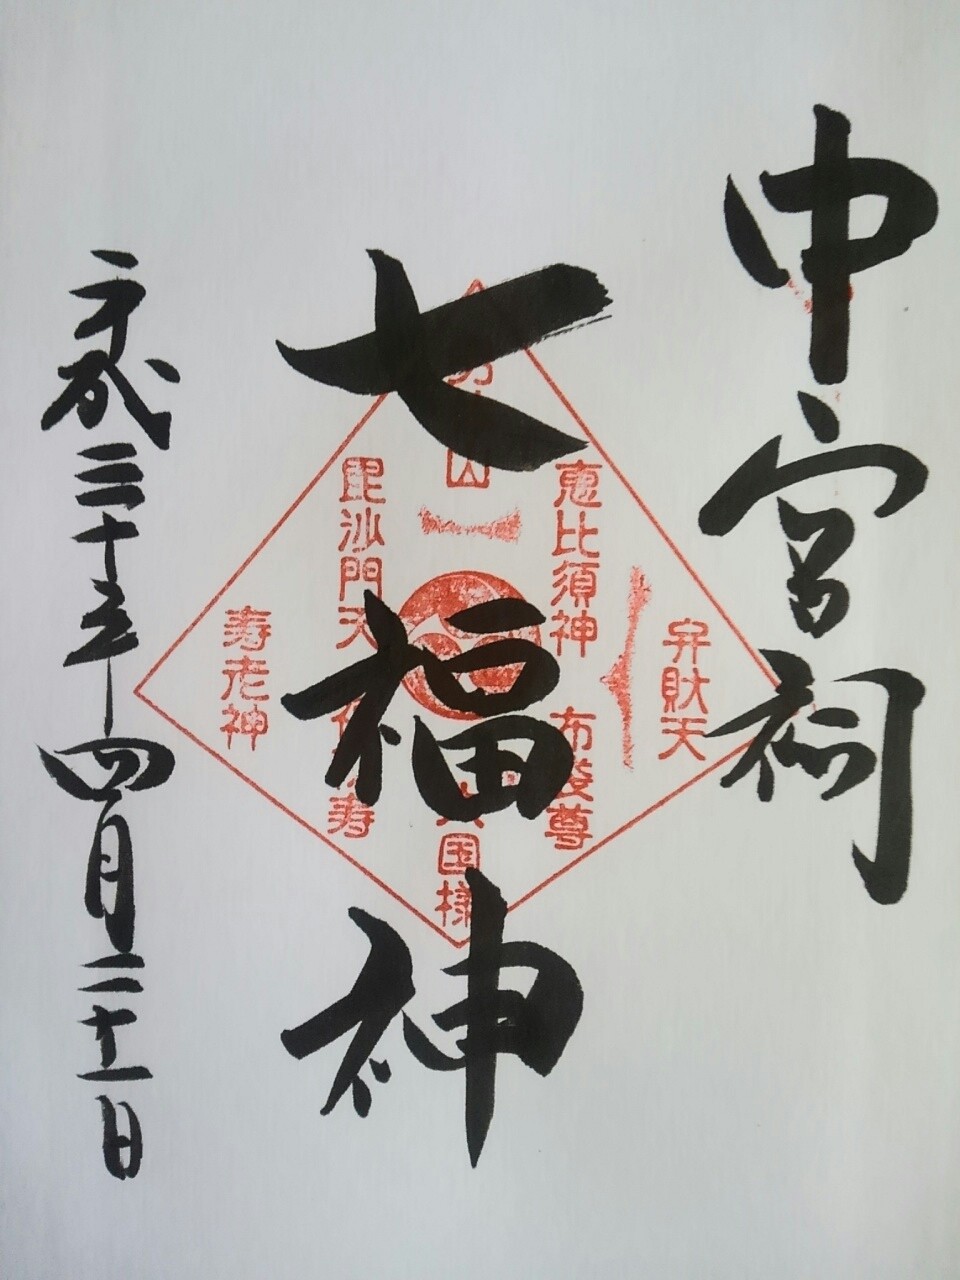 中宮祠
七福神
平成三十年四月二十一日
弁財天
恵比須神
布袋尊
山
国様
毘沙門天
寿
寿老神